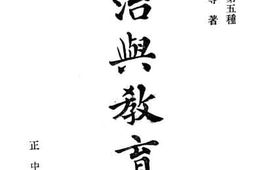 第五種
等著
治與教育
正中